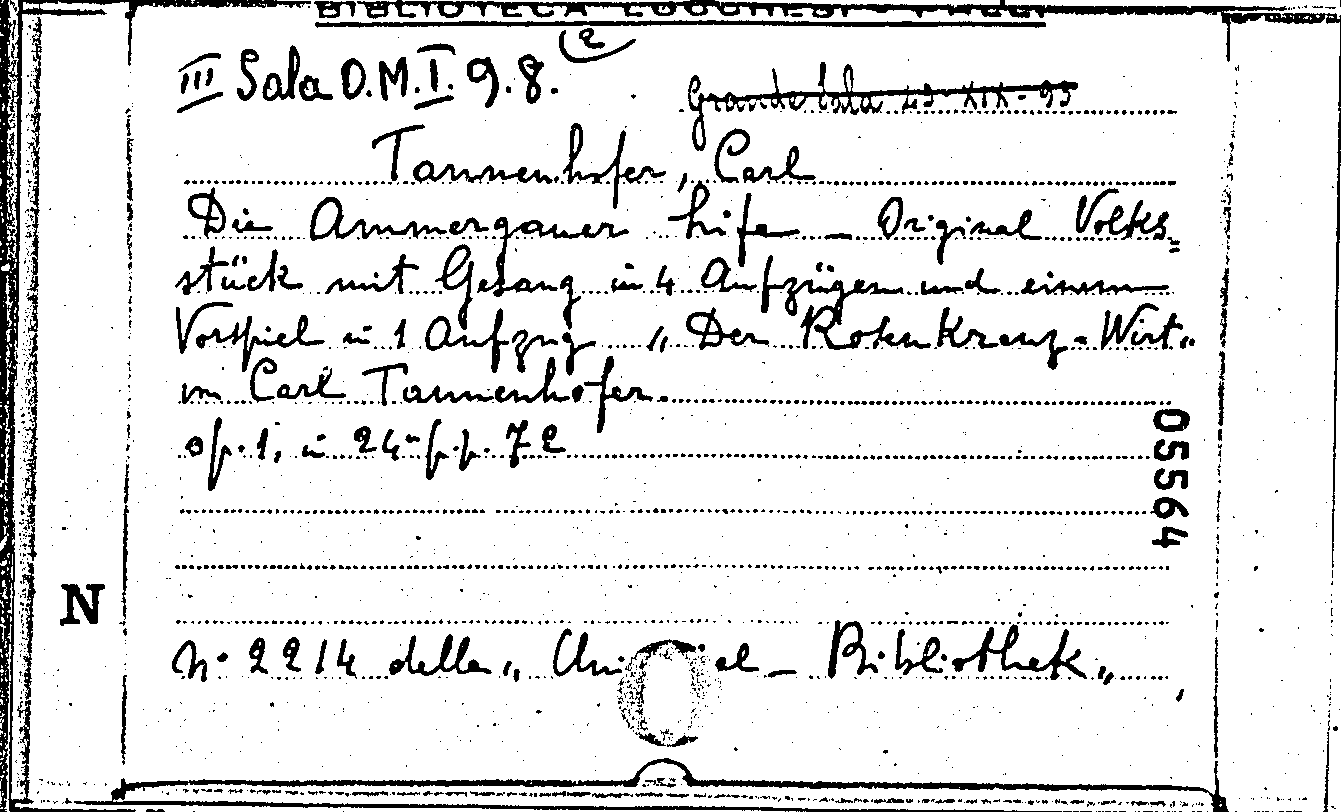 BIBLIOTECA LUCCHESI - PALLI
III Sala O.M.I. 9.8. (2
Grande Sala
Tannenhofer, Carl
Die Ammergauer Lise – Original Volks=
stück mit Gesang in 4 Aufzügen und einem
Vorspiel in 1 Aufzug „ Der Rosenkreuz-Wirt„
von Carl Tannenhofer.
op. 1, in 24° p.p. 72
05564
N
N. 2214 della „ Uni el – Bibliothek„